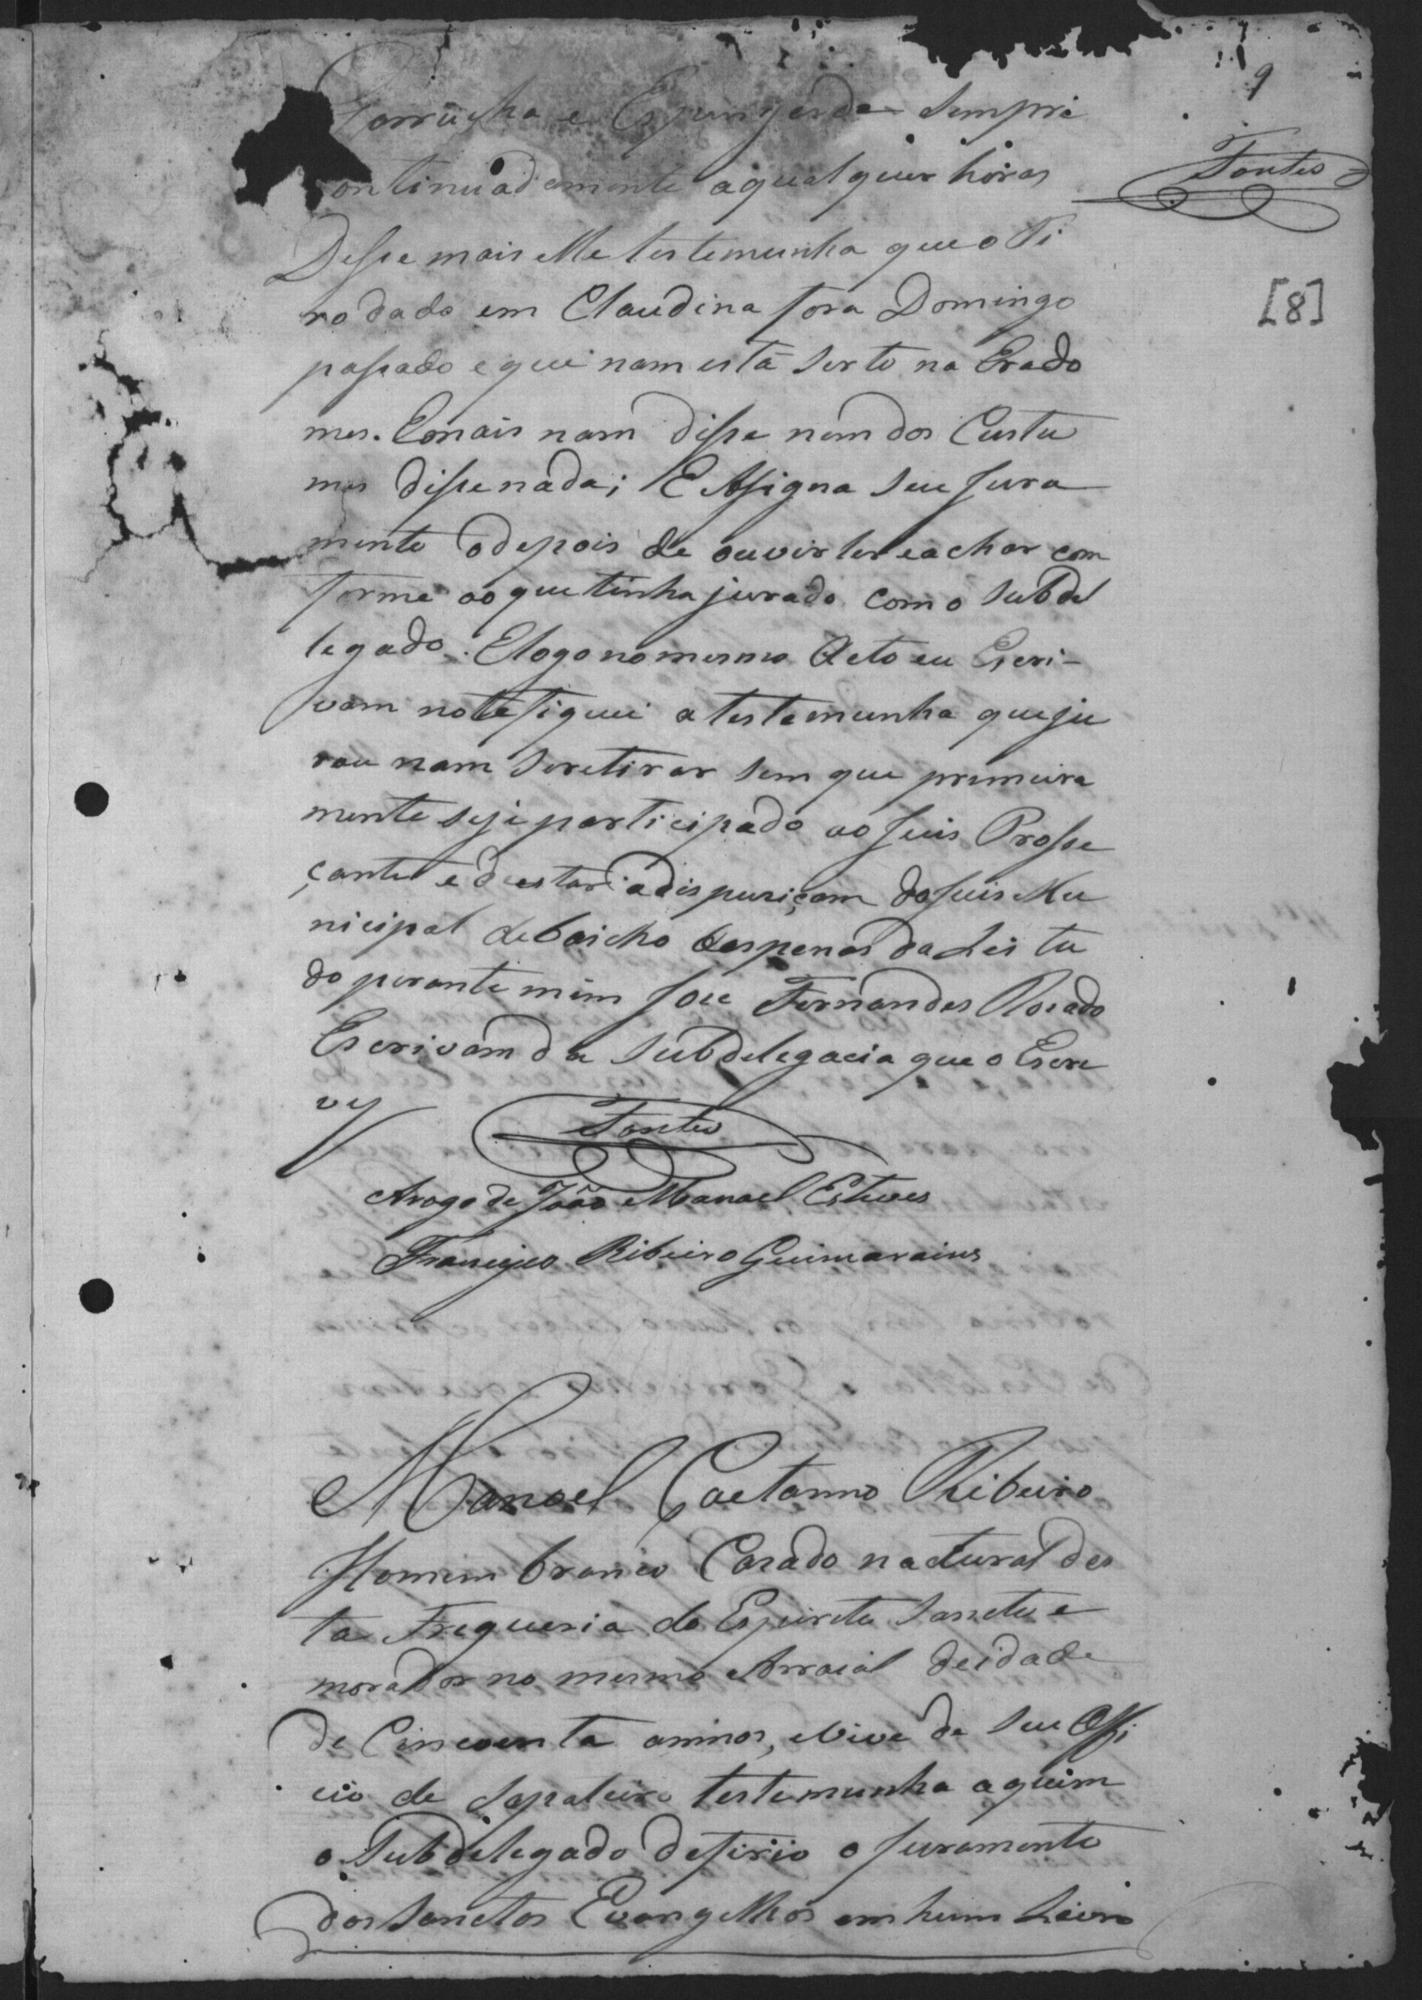 9
Fontes
[8]
Garrucha e Espingarda sempre
continuadamente aqualquer horas
Disse mais elle testemunha que o Ti
ro dado em Claudina fora Domingo
passado e que nam está serto na Erado
mes. Emais nam disse nem dos Custu
mes disse nada; E Assigna seu Jura
mento odepois de ouvir ler eachar com
forme aoque tinha jurado com o Subde
legado. Elogo no mesmo Acto eu Escri-
vam notefiquei a testemunha queju
rou nam seretirar sem que primeira
mente seje participado ao Juis Prosse
çante e de estar adispuziçam do Juis Mu
nicipal debaicho das penas da Lei tu
do perante mim Joze Fernandes Rosado
Escrivam da Subdelegacia que o Escre
vy
Fontes
Arogo de João Manoel Esteves
Francisco Ribeiro Guimarains
Manoel Caetanno Ribeiro
Homem branco Cazado natural des
ta Freguezia do Espireto Sancto e
morador no mesmo Arraial de idade
de Cincoenta annos, eVive de seu Offi
cio de Sapateiro testemunha aquem
o Subdelegado defirio o Juramento
dos Sanctos Evangelhos em hum Livro